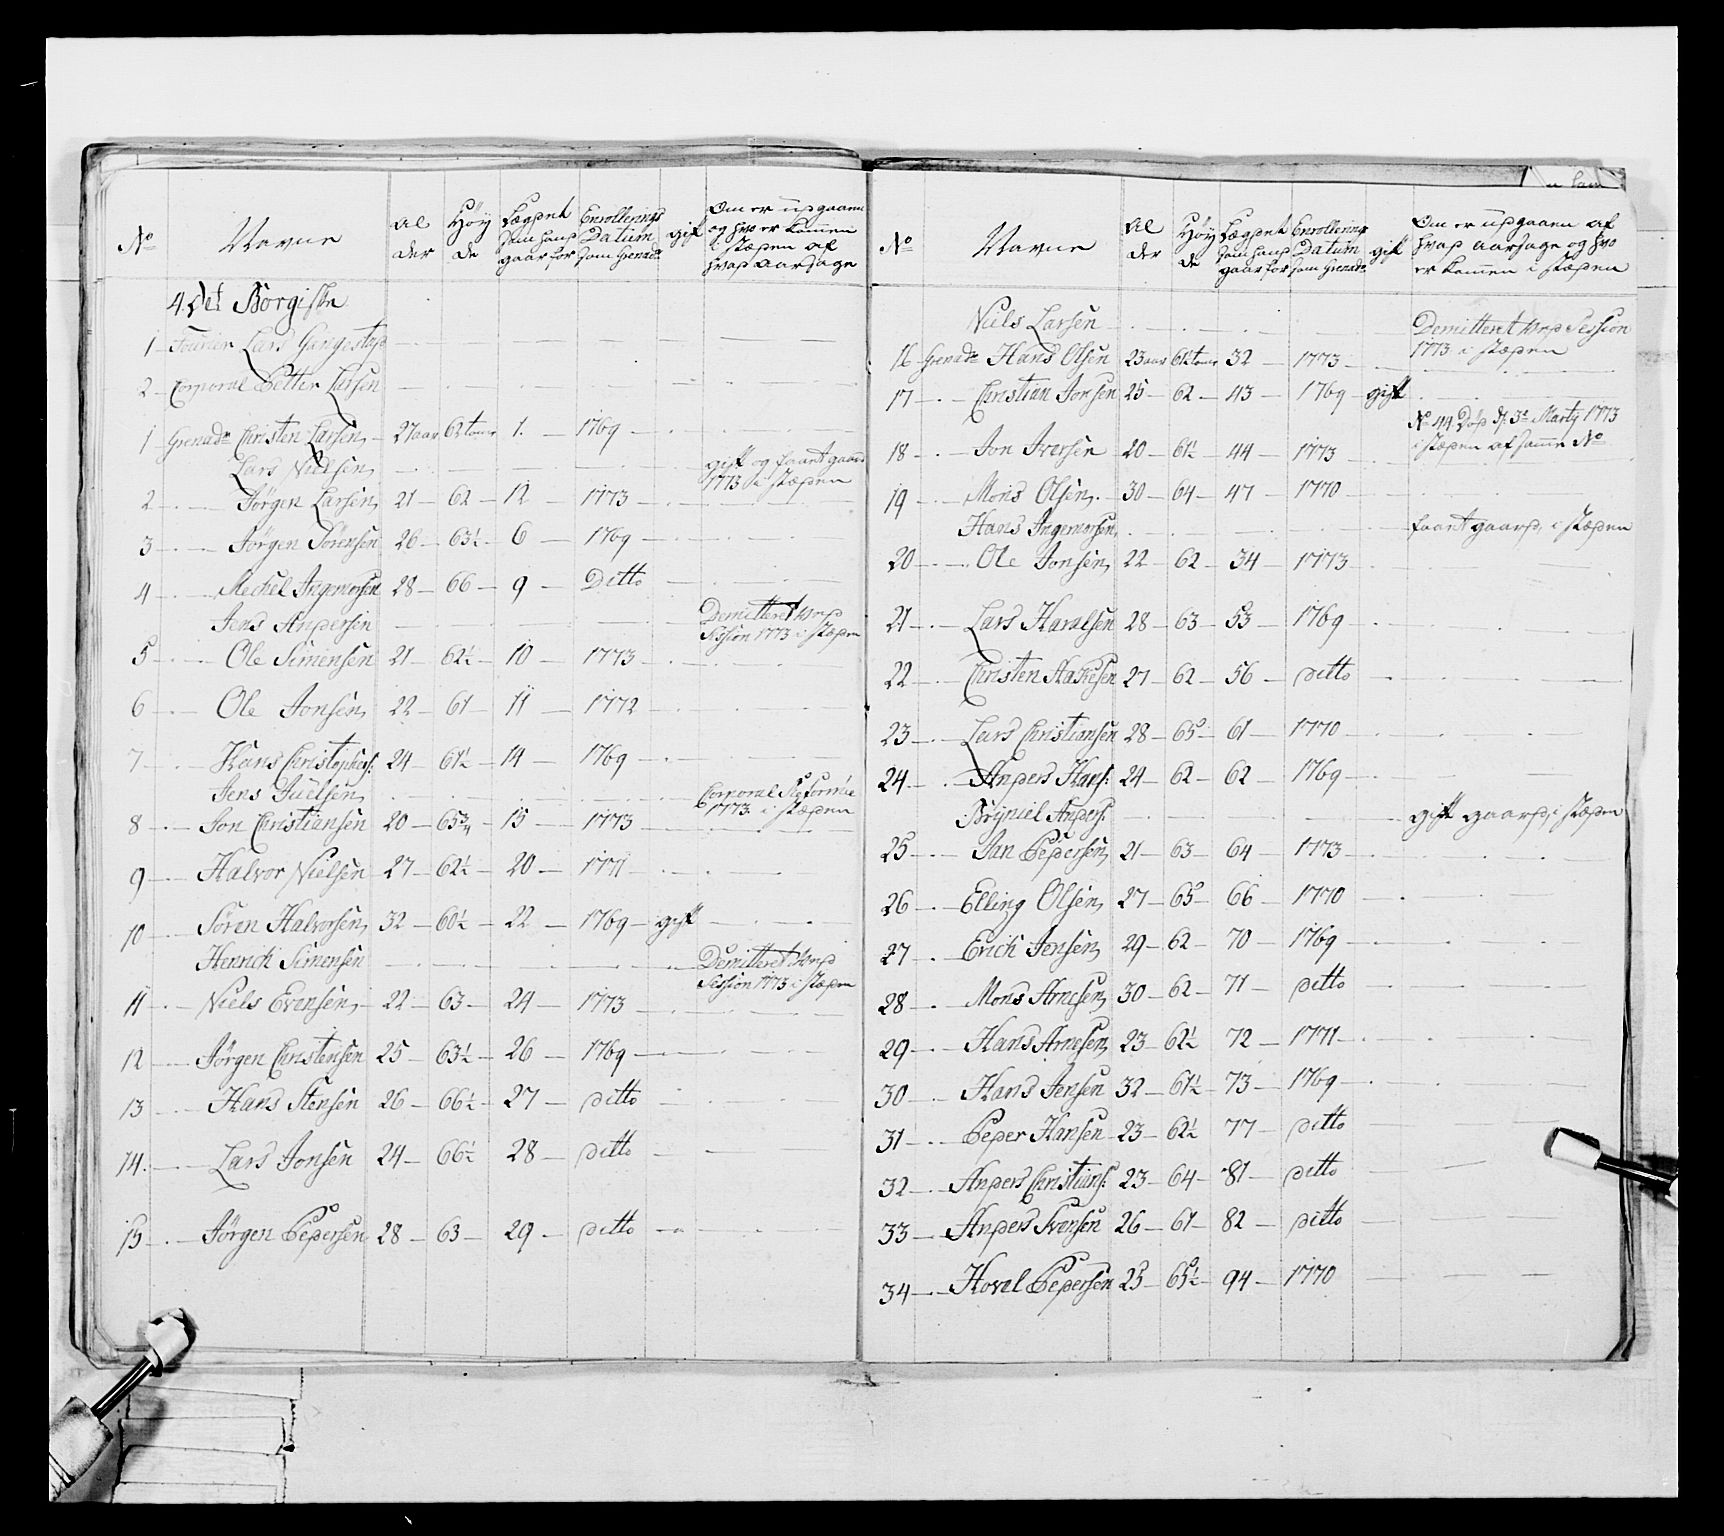 No Navne Alder Høyde Lægdent som hand gaar for Enrollerings Datum som Grenadr gift Om er udgaaen og hvo er kommen i stæden af hvad aarsage
4de Borgiske
1 Fourier Lars Gangestad
2 Corporal Petter Larsen
1 Grenadr Christen Larsen 27 aar 62 tomr 1. 1769
Lars Nielsen gift og faaet gaard 1773 i stæden
2 Jørgen Larsen 21 62 12 1773
3 Jørgen Sørensen 26 63½ 6 1769
4 Michel Ingemorsen 28 66 9 Ditto
Jens Andersen Demitteret ved Session 1773 i stæden
5 Ole Simensen 21 62½ 10 1773
6 Ole Jonsen 22 61 11 1772
7 Hans Christophers: 24 61½ 14 1769
Jens Juelsen Corporal Reformée 1773 i stæden
8 Jon Christiansen 20 65¾ 15 1773
9 Halvor Nielsen 27 62½ 20 1771
10 Søren Halvorsen 32 60½ 22 1769 gift
Henrich Simensen Demitteret ved Session 1773 i stæden
11 Niels Evensen 22 63 24 1773
12 Jørgen Christensen 25 63½ 26 1769
13 Hans Stensen 26 66½ 27 ditto
14. Lars Jonsen 24 66½ 28 ditto
15 Jørgen Pedersen 28 63 29 ditto
No Navne Alder Høyde Lægdent som hand gaar for Enrollerings Datum som Grenadr gift Om er udgaaen af hvad aarsage og hvo er kommen i stæden
Niels Larsen Demitteret ved Session 1773 i stæden
16 Grenadr Hans Olsen 23 aar 61½ tomr 32 1773
17 Christian Jonsen 25 62 43 1769 gift
No 44 Død d: 3e Marty 1773
18 Jon Iversen 20 61½ 44 1773 i stæden af samme No
19 Mons Olsen 30 64 47 1770
Hans Ingemorsen faaet gaard, i stæden
20 Ole Jonsen 22 62 34 1773
21 Lars Haralsen 28 63 53 1769
22 Christen Hakesen 27 62 56 ditto
23 Lars Christiansen 28 65 61 1770
24 Anders Hans: 24 62 62 1769
Bryniel Anders: gift gaard, i stæden
25 Jan Pedersen 21 63 64 1773
26 Elling Olsen 27 65 66 1770
27 Erich Jensen 29 62 70 1769
28 Mons Arnesen 30 62 71 ditto
29 Hans Arnesen 23 62½ 72 1771
30 Hans Jensen 32 61½ 73 1769
31 Peder Hansen 23 62½ 77 ditto
32 Anders Christians: 23 64 81 ditto
33 Anders Svensen 26 61 82 ditto
34 Hovel Pedersen 25 65½ 94 1770